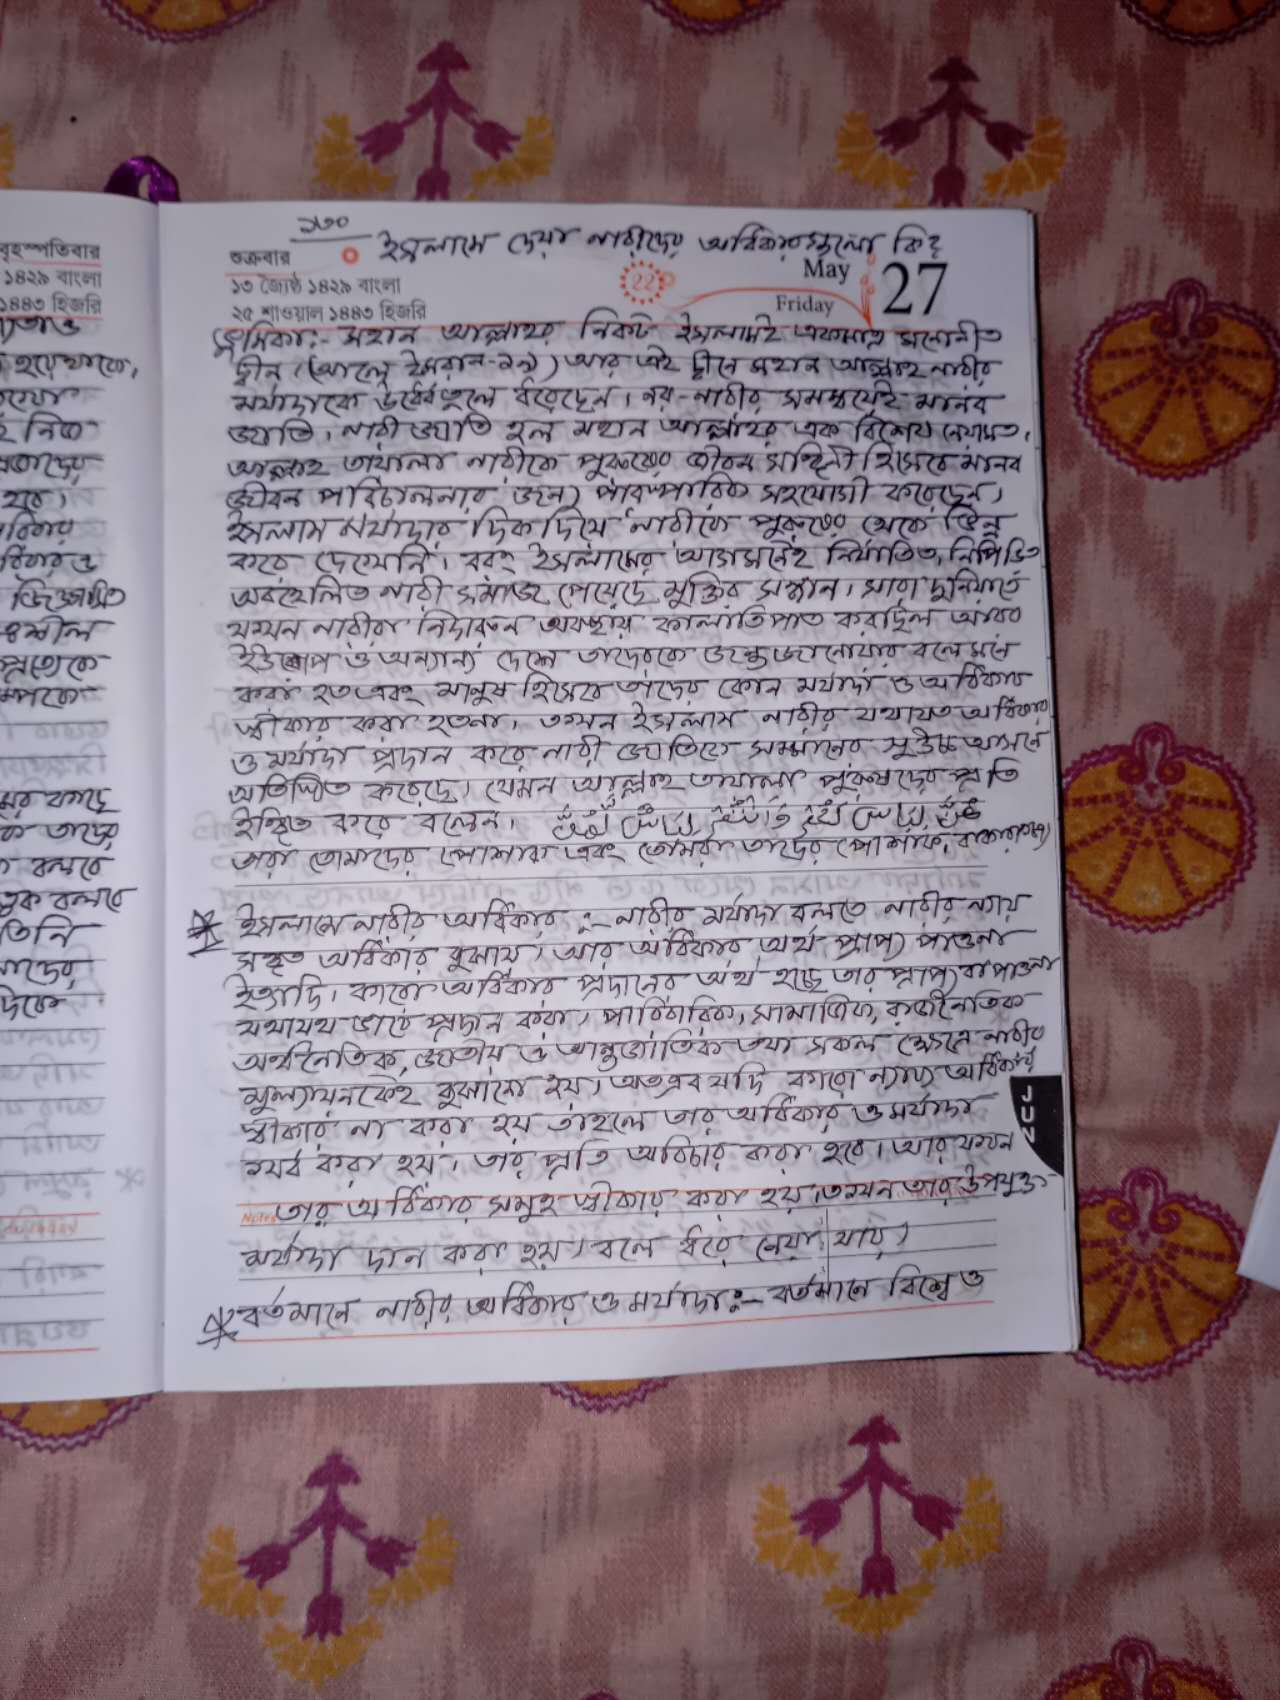 বৃহস্পতিবার
১৪২৯ বাংলা
১৪৪৩ হিজরি
হয়ে থাকে,
হবে।
তিনি
১৩০
ইসলামে দেয়া নারীদের অধিকারগুলো কি?
শুক্রবার
১৩ জ্যৈষ্ঠ ১৪২৯ বাংলা
২৫ শাওয়াল ১৪৪৩ হিজরি
22
May
27
Friday
ভূমিকা:- মহান আল্লাহর নিকট ইসলামই একমাত্র মনোনীত
দ্বীন। (আলে ইমরান-১৯) আর এই দ্বীনে মহান আল্লাহ নারীর
মর্যাদাকে উর্ধ্বে তুলে ধরেছেন। নর-নারীর সমন্বয়েই মানব
জাতি। নারী জাতি হল মহান আল্লাহর এক বিশেষ নেয়ামত।
আল্লাহ তায়ালা নারীকে পুরুষের জীবন সঙ্গিনী হিসেবে মানব
জীবন পরিচালনার জন্য পারস্পারিক সহযোগী করেছেন।
ইসলাম মর্যাদার দিক দিয়ে নারীকে পুরুষের থেকে ভিন্ন
করে দেখেনি। বরং ইসলামের আগমনেই নির্যাতিত, নিপিড়িত
অবহেলিত নারী সমাজ পেয়েছে মুক্তির সন্ধান। সারা দুনিয়াতে
যখন নারীরা নিদারুন অবস্থায় কালাতিপাত করছিল আরব
ইউরোপ ও অন্যান্য দেশে তাদেরকে জন্তু জানোয়ার বলে মনে
করা হত এবং মানুষ হিসেবে তাদের কোন মর্যাদা ও অধিকার
স্বীকার করা হতনা। তখন ইসলাম নারীর যথাযত অধিকার
ও মর্যাদা প্রদান করে নারী জাতিকে সম্মানের সুউচ্চ আসনে
অতিষ্ঠিত করেছে। যেমন আল্লাহ তায়ালা পুরুষদের প্রতি
ইঙ্গিত করে বলেন।
তারা তোমাদের পোশাক এবং তোমরা তাদের পোশাক,
ইসলামে নারীর অধিকার :- নারীর মর্যাদা বলতে নারীর ন্যায়
সঙ্গত অধিকার বুঝায়। আর অধিকার অর্থ প্রাপ্য পাওনা
ইত্যাদি। কারো অধিকার প্রদানের অর্থ হচ্ছে তার প্রাপ্য বা পাওনা
যথাযথ ভাবে প্রদান করা। পারিবারিক, সামাজিক, রাজনৈতিক
অর্থনৈতিক, জাতীয় ও আন্তর্জাতিক তথা সকল ক্ষেত্রে নারীর
মূল্যায়নকেই বুঝানো হয়। অতএব যদি কারো ন্যায্য অধিকার
স্বীকার না করা হয় তাহলে তার অধিকার ও মর্যাদা
খর্ব করা হয়। তার প্রতি অবিচার করা হবে। আর যখন
JUN
Notes
তার অধিকার সমুহ স্বীকার করা হয়। তখন তার উপযুক্ত
মর্যাদা দান করা হয়। বলে ধরে নেয়া যায়।
বর্তমানে নারীর অধিকার ও মর্যাদা:- বর্তমানে বিশ্বে ও